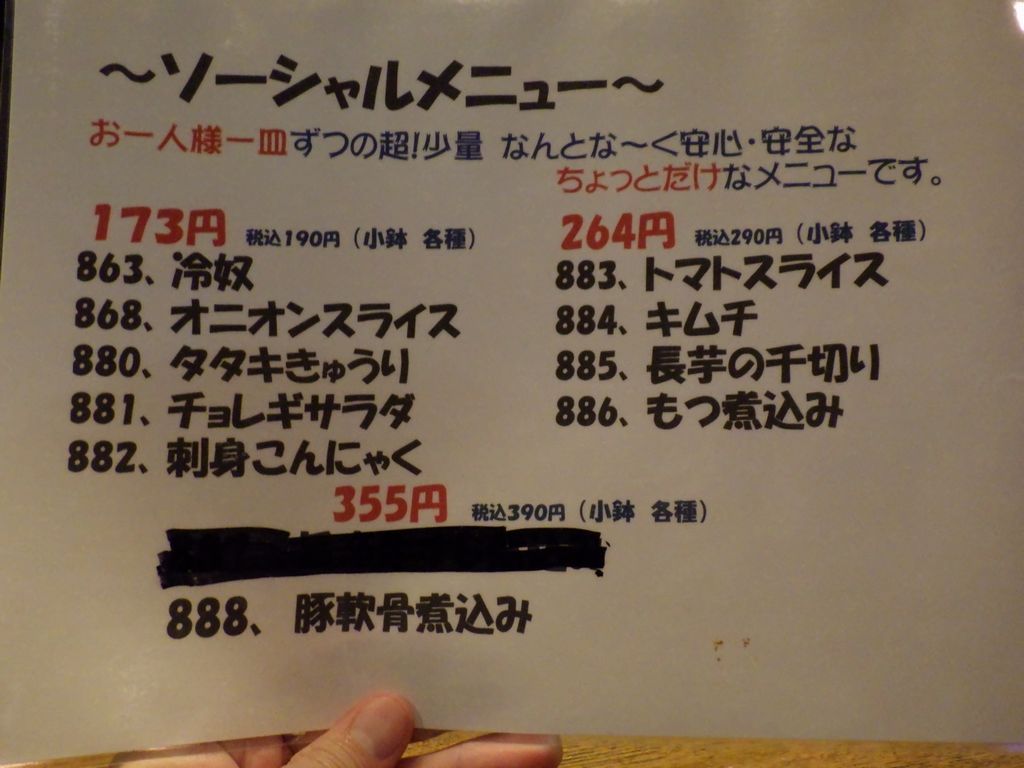 ～ソーシャルメニュー～
お一人様一皿ずつの超!少量 なんとな～く安心・安全な
ちょっとだけなメニューです。
173円 税込190円（小鉢 各種）
863、冷奴
868、オニオンスライス
880、タタキきゅうり
881、チョレギサラダ
882、刺身こんにゃく
264円 税込290円（小鉢 各種）
883、トマトスライス
884、キムチ
885、長芋の千切り
886、もつ煮込み
355円 税込390円（小鉢 各種）
888、豚軟骨煮込み